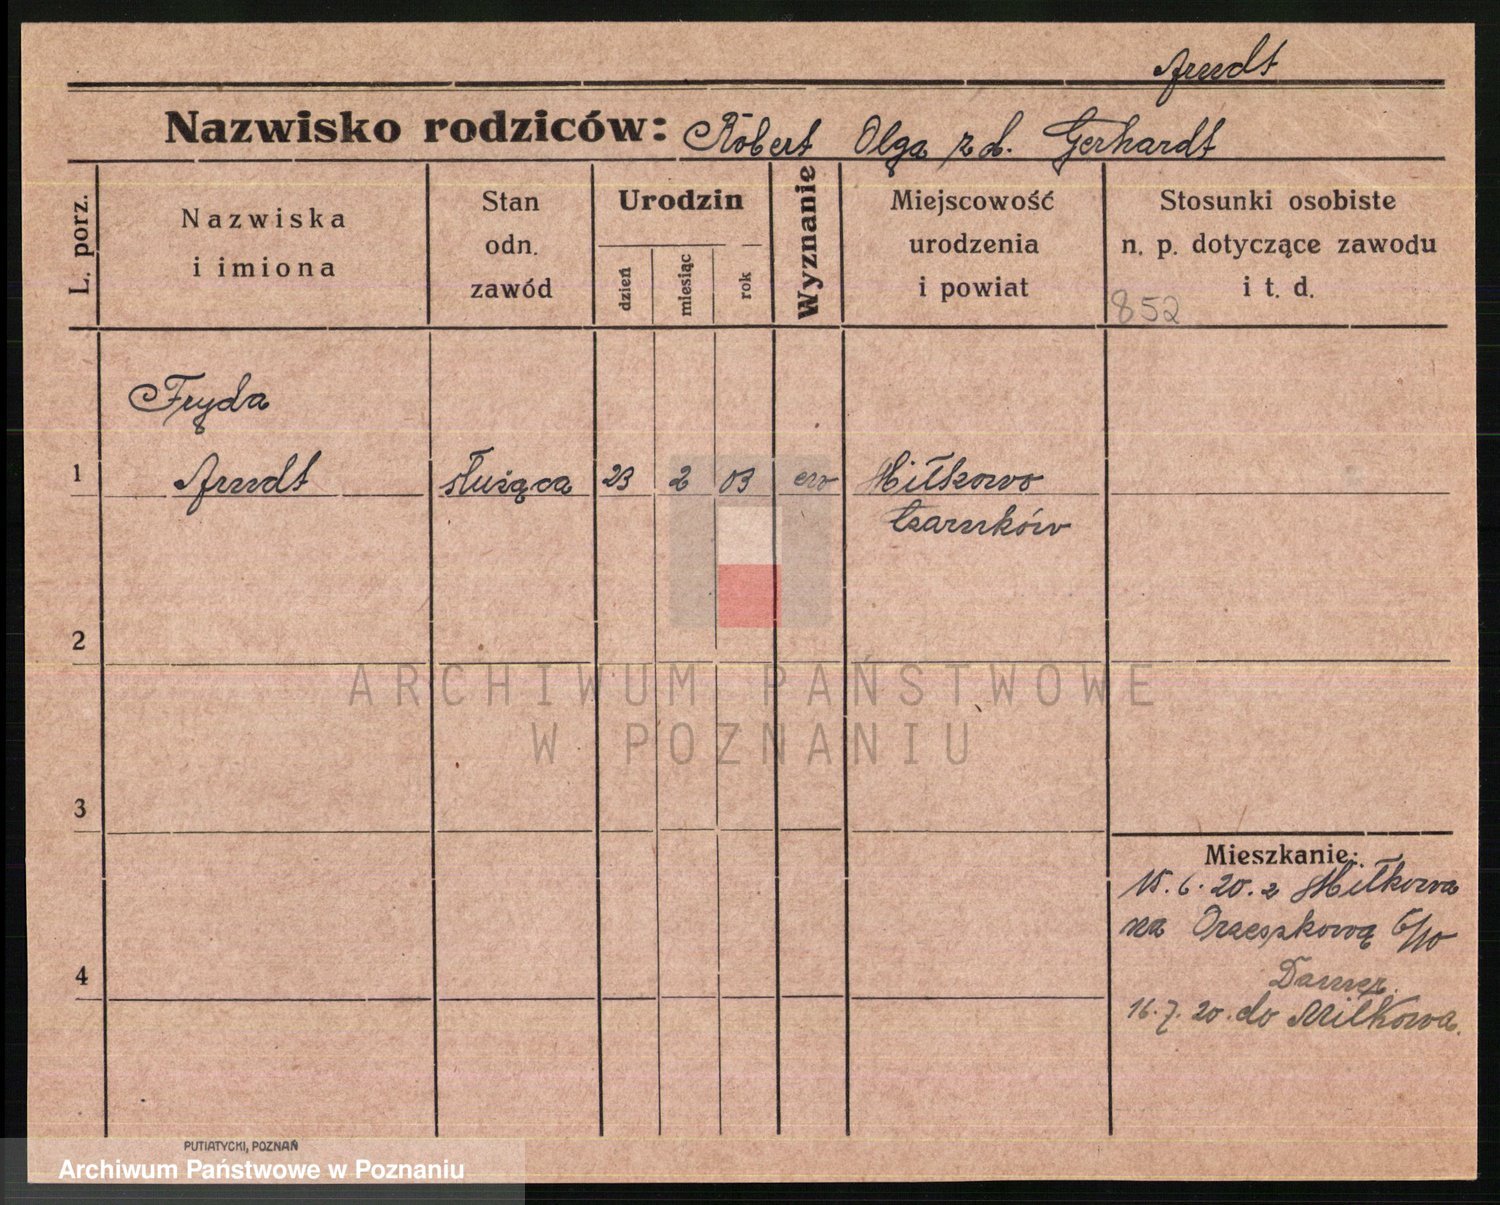 Arndt
Nazwisko rodziców: Robert Olga z d. Gerhardt
L. porz.
Nazwiska
i imiona
Stan
odn.
zawód
Urodzin
dzień
miesiąc
rok
Wyznanie
Miejscowość
urodzenia
i powiat
Stosunki osobiste
n. p. dotyczące zawodu
i t. d.
852
Fryda
1 Arndt służąca 23 2 03 ew Miłkowo
Czarnków
2
3
4
Mieszkanie:
15.6.20. z Miłkowa
na Orzeszkową
16.7.20. do Miłkowa.
ARCHIWUM PAŃSTWOWE
W POZNANIU
PUTIATYCKI, POZNAŃ
Archiwum Państwowe w Poznaniu